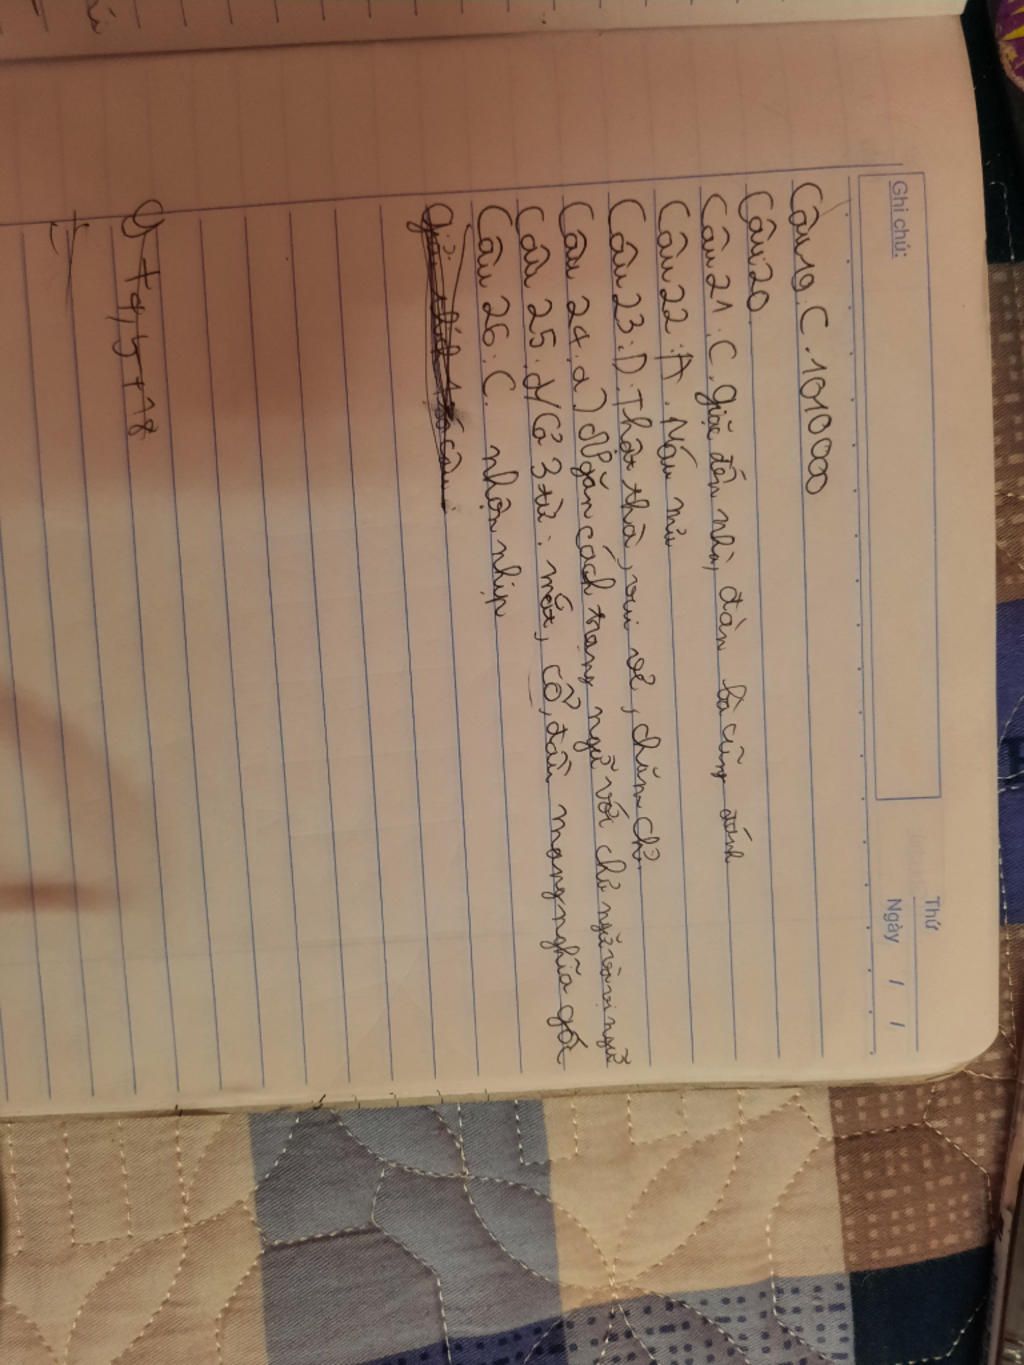 Ghi chú:
Thứ
Ngày / /
Câu 19. C. 1010000
Câu 20
Câu 21. C. giặc đến nhà, đàn bà cũng đánh
Câu 22: A. Náu mư
Câu 23: D. Thật thà, vui vẻ, chăm chỉ.
Câu 24. a) Ngăn cách trạng ngữ với chủ ngữ và vị ngữ
Câu 25: d/ Cả 3 từ: mắt, cổ, đầu mang nghĩa gốc
Câu 26: C. nhộn nhịp